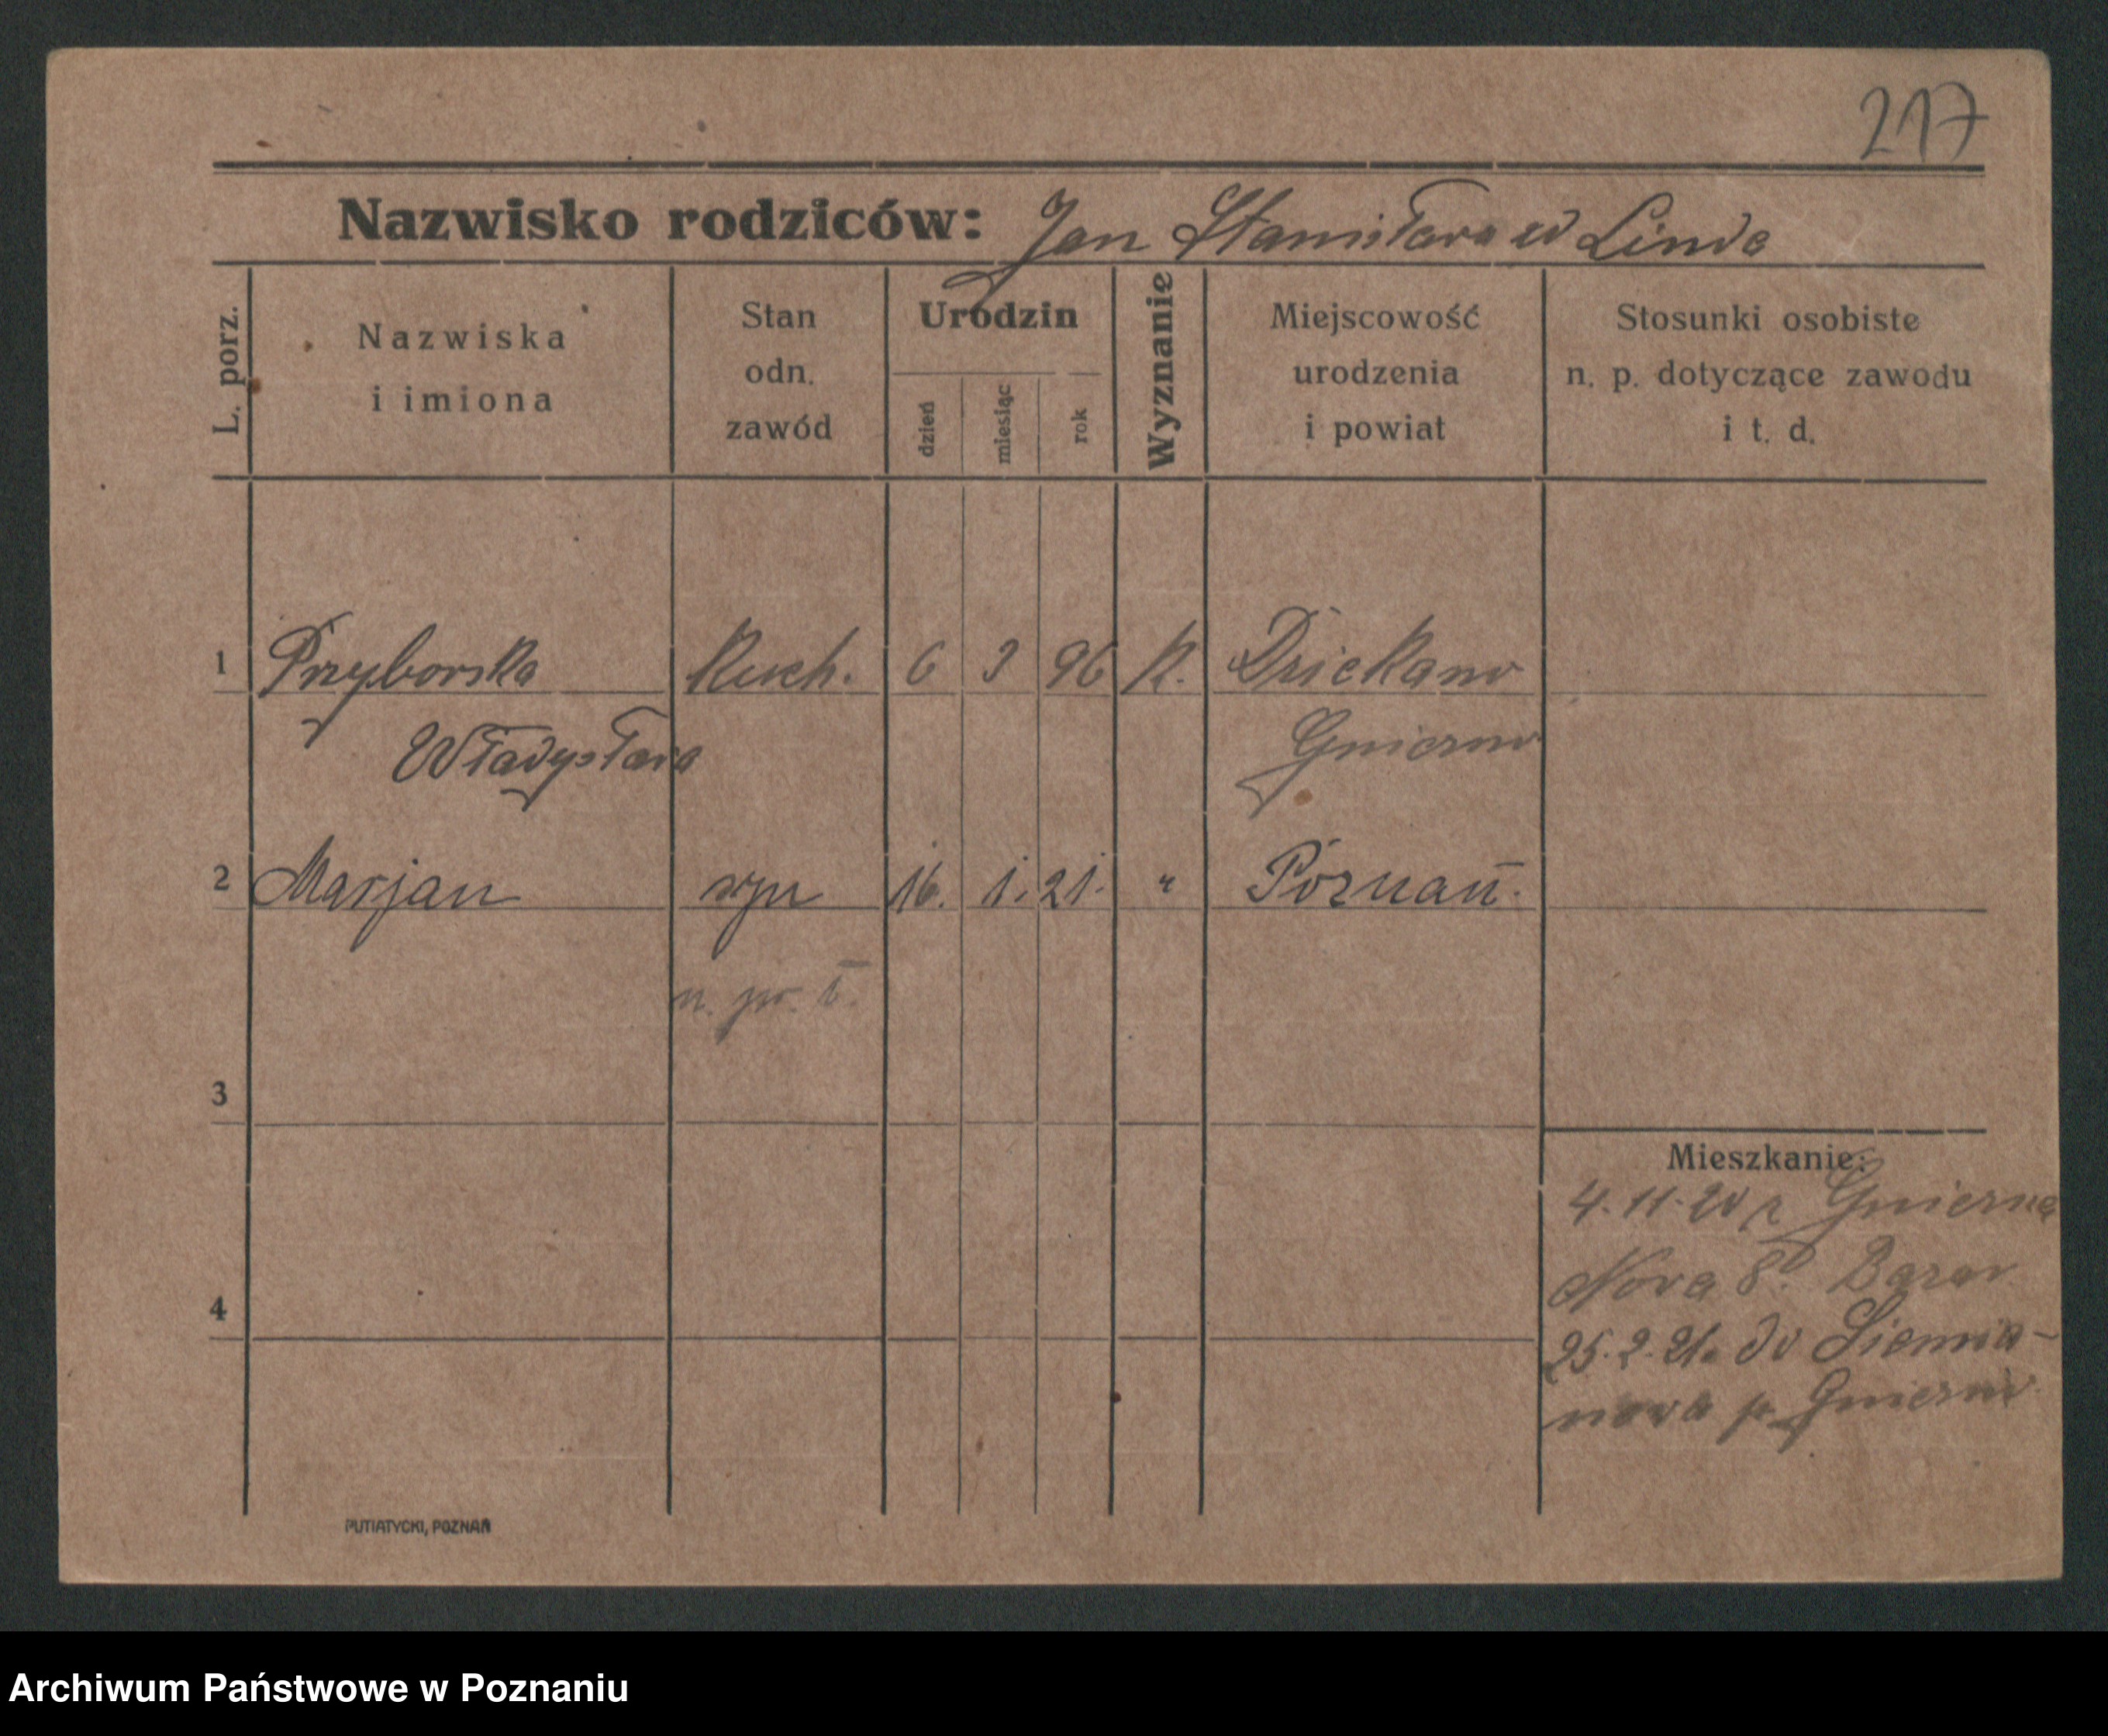 217
Nazwisko rodziców: Jan Stanisława d Linde
L. porz.
Nazwiska
i imiona
Stan
odn.
zawód
Urodzin
dzień
miesiąc
rok
Wyznanie
Miejscowość
urodzenia
i powiat
Stosunki osobiste
n. p. dotyczące zawodu
i t. d.
1 Przyborska Kuch. 6 3 96 K. Dziekano
Władysława Gniezno
2 Marjan syn 16. 1. 21. " Poznań.
3
Mieszkanie:
4. 11. 20 z Gniezna
Nowa 8 Bazar
4
25. 2. 21. do Siemia-
nowa p. Gniezno
PUTIATYCKI, POZNAŃ
Archiwum Państwowe w Poznaniu